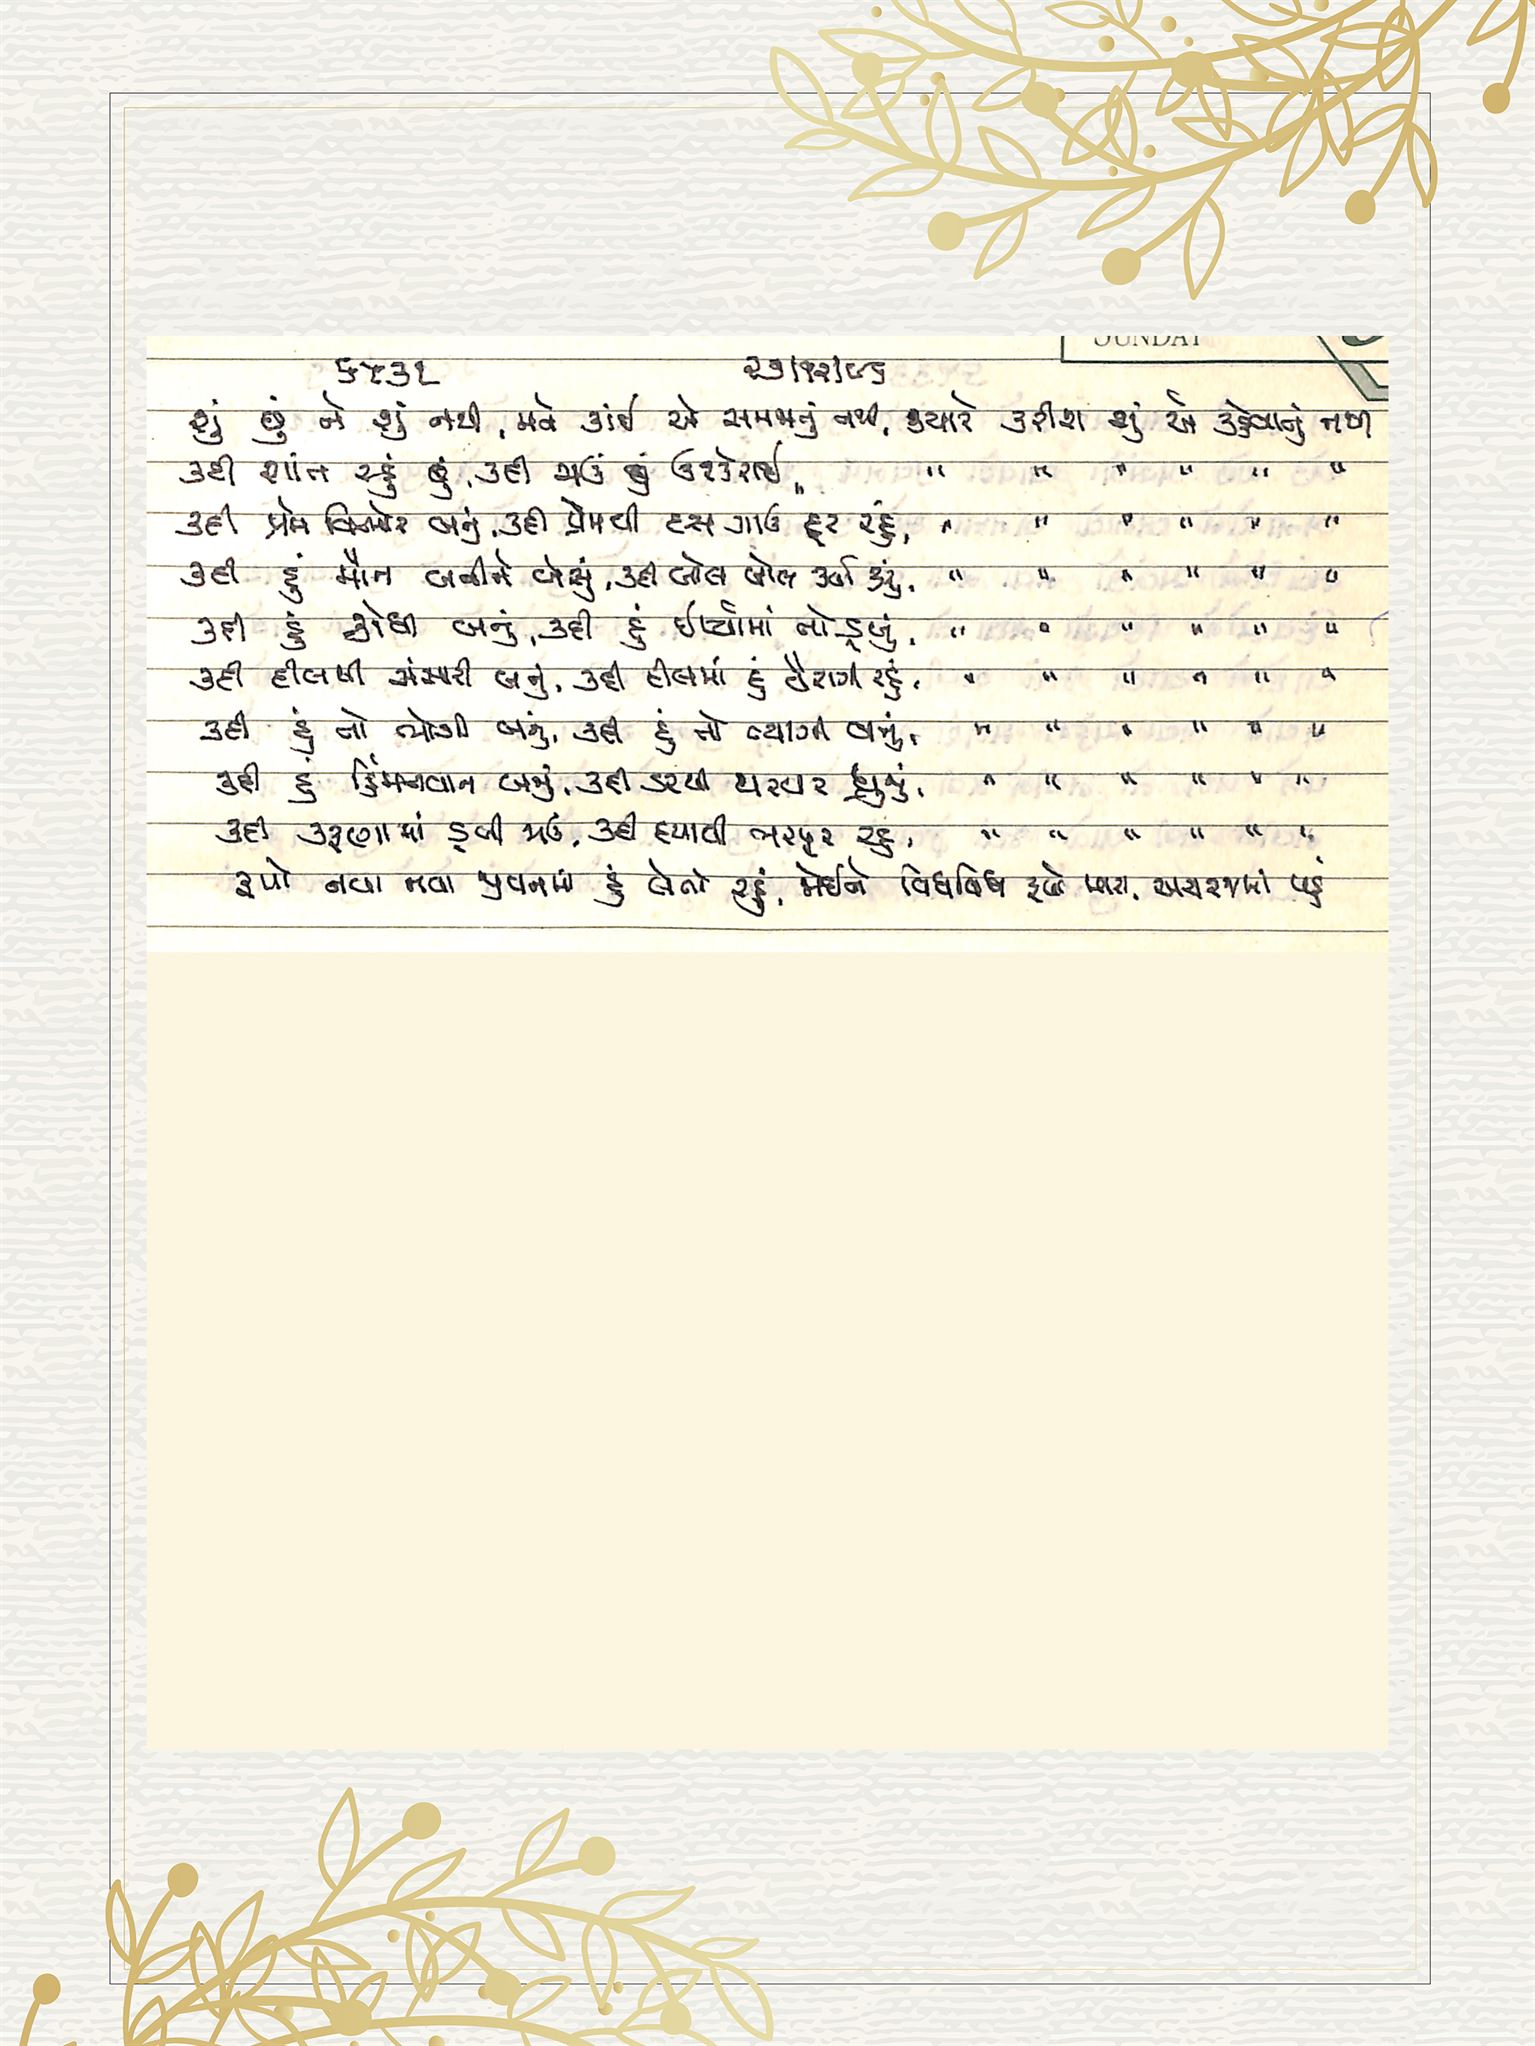 SUNDAY
૬૪૩૨ ૨૭/૧૨/૯૬
શું છું ને શું નથી, મને કાંઈ એ સમજાતું નથી, ક્યારે કરીશ શું એ કહેવાતું નથી
કદી શાંત રહું છું, કદી જાઉં છું ઉશ્કેરાઈ, " " " " " "
કદી પ્રેમ વિભોર બનું, કદી પ્રેમથી દસ ગાઉ દૂર રહું, " " " " " "
કદી હું મૌન બનીને બેસું, કદી બોલ બોલ કર્યા કરું, " " " " " "
કદી હું ક્રોધી બનું, કદી હું ઈર્ષ્યામાં તો ડૂબું, " " " " " "
કદી દીલથી સંસારી બનું, કદી દીલમાં હું વૈરાગી રહું, " " " " " "
કદી હું તો ભોગી બનું, કદી હું તો ત્યાગી બનું, " " " " " "
કદી હું હિંમતવાન બનું, કદી ડરથી થરથર ધ્રુજું, " " " " " "
કદી કરૂણામાં ડૂબી જાઉં, કદી દયાથી ભરપૂર રહું, " " " " " "
રૂપો નવા નવા જીવનમાં હું લેતો રહું, જોઈને વિધવિધ રૂપો મારા, અચરજમાં પડું